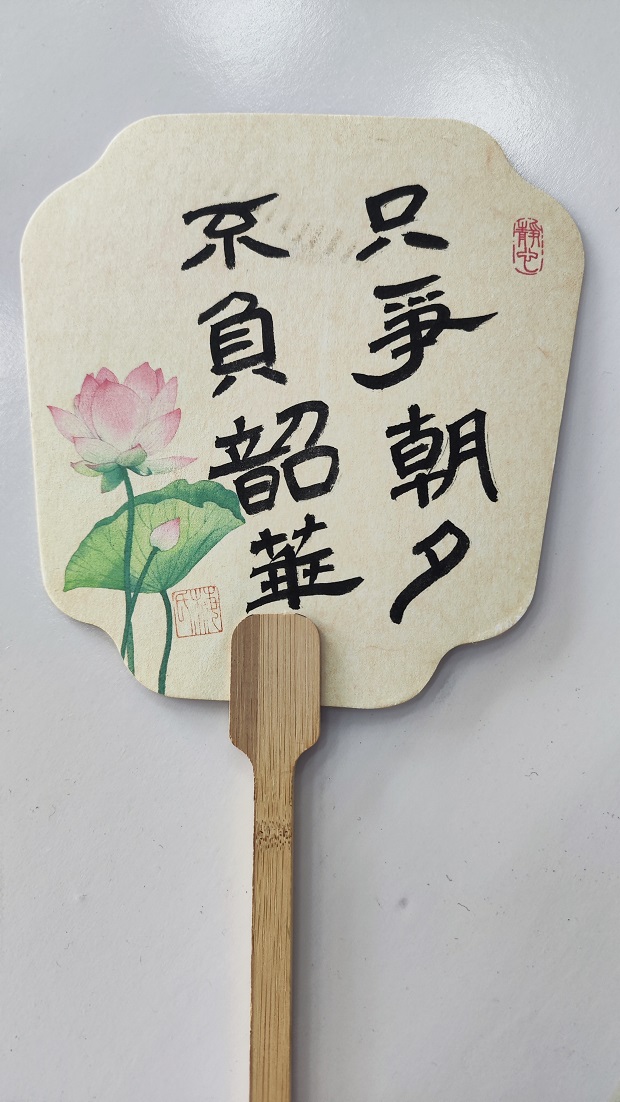 只爭朝夕
不負韶華
靜心